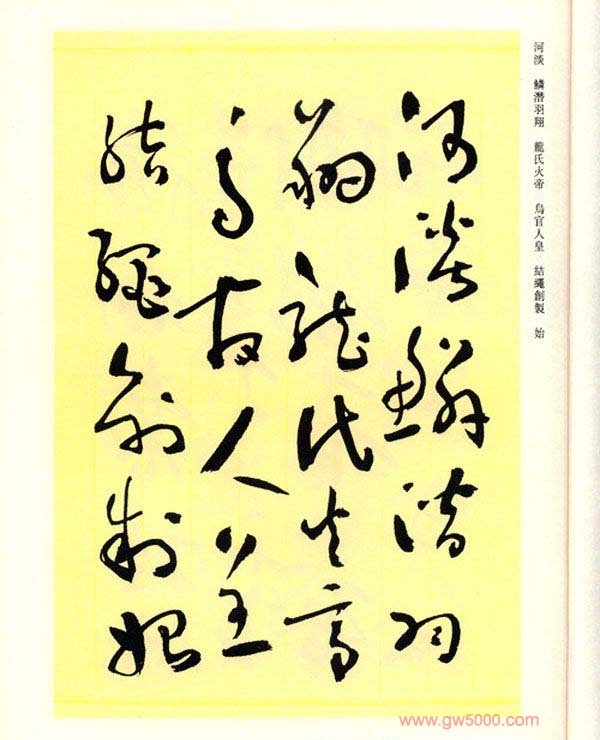 河淡　鱗潛羽翔　龍氏火帝　鳥官人皇　結繩創製　始
河淡鱗潛羽
翔龍氏火帝
鳥官人皇
結繩創制始
www.gw5000.com